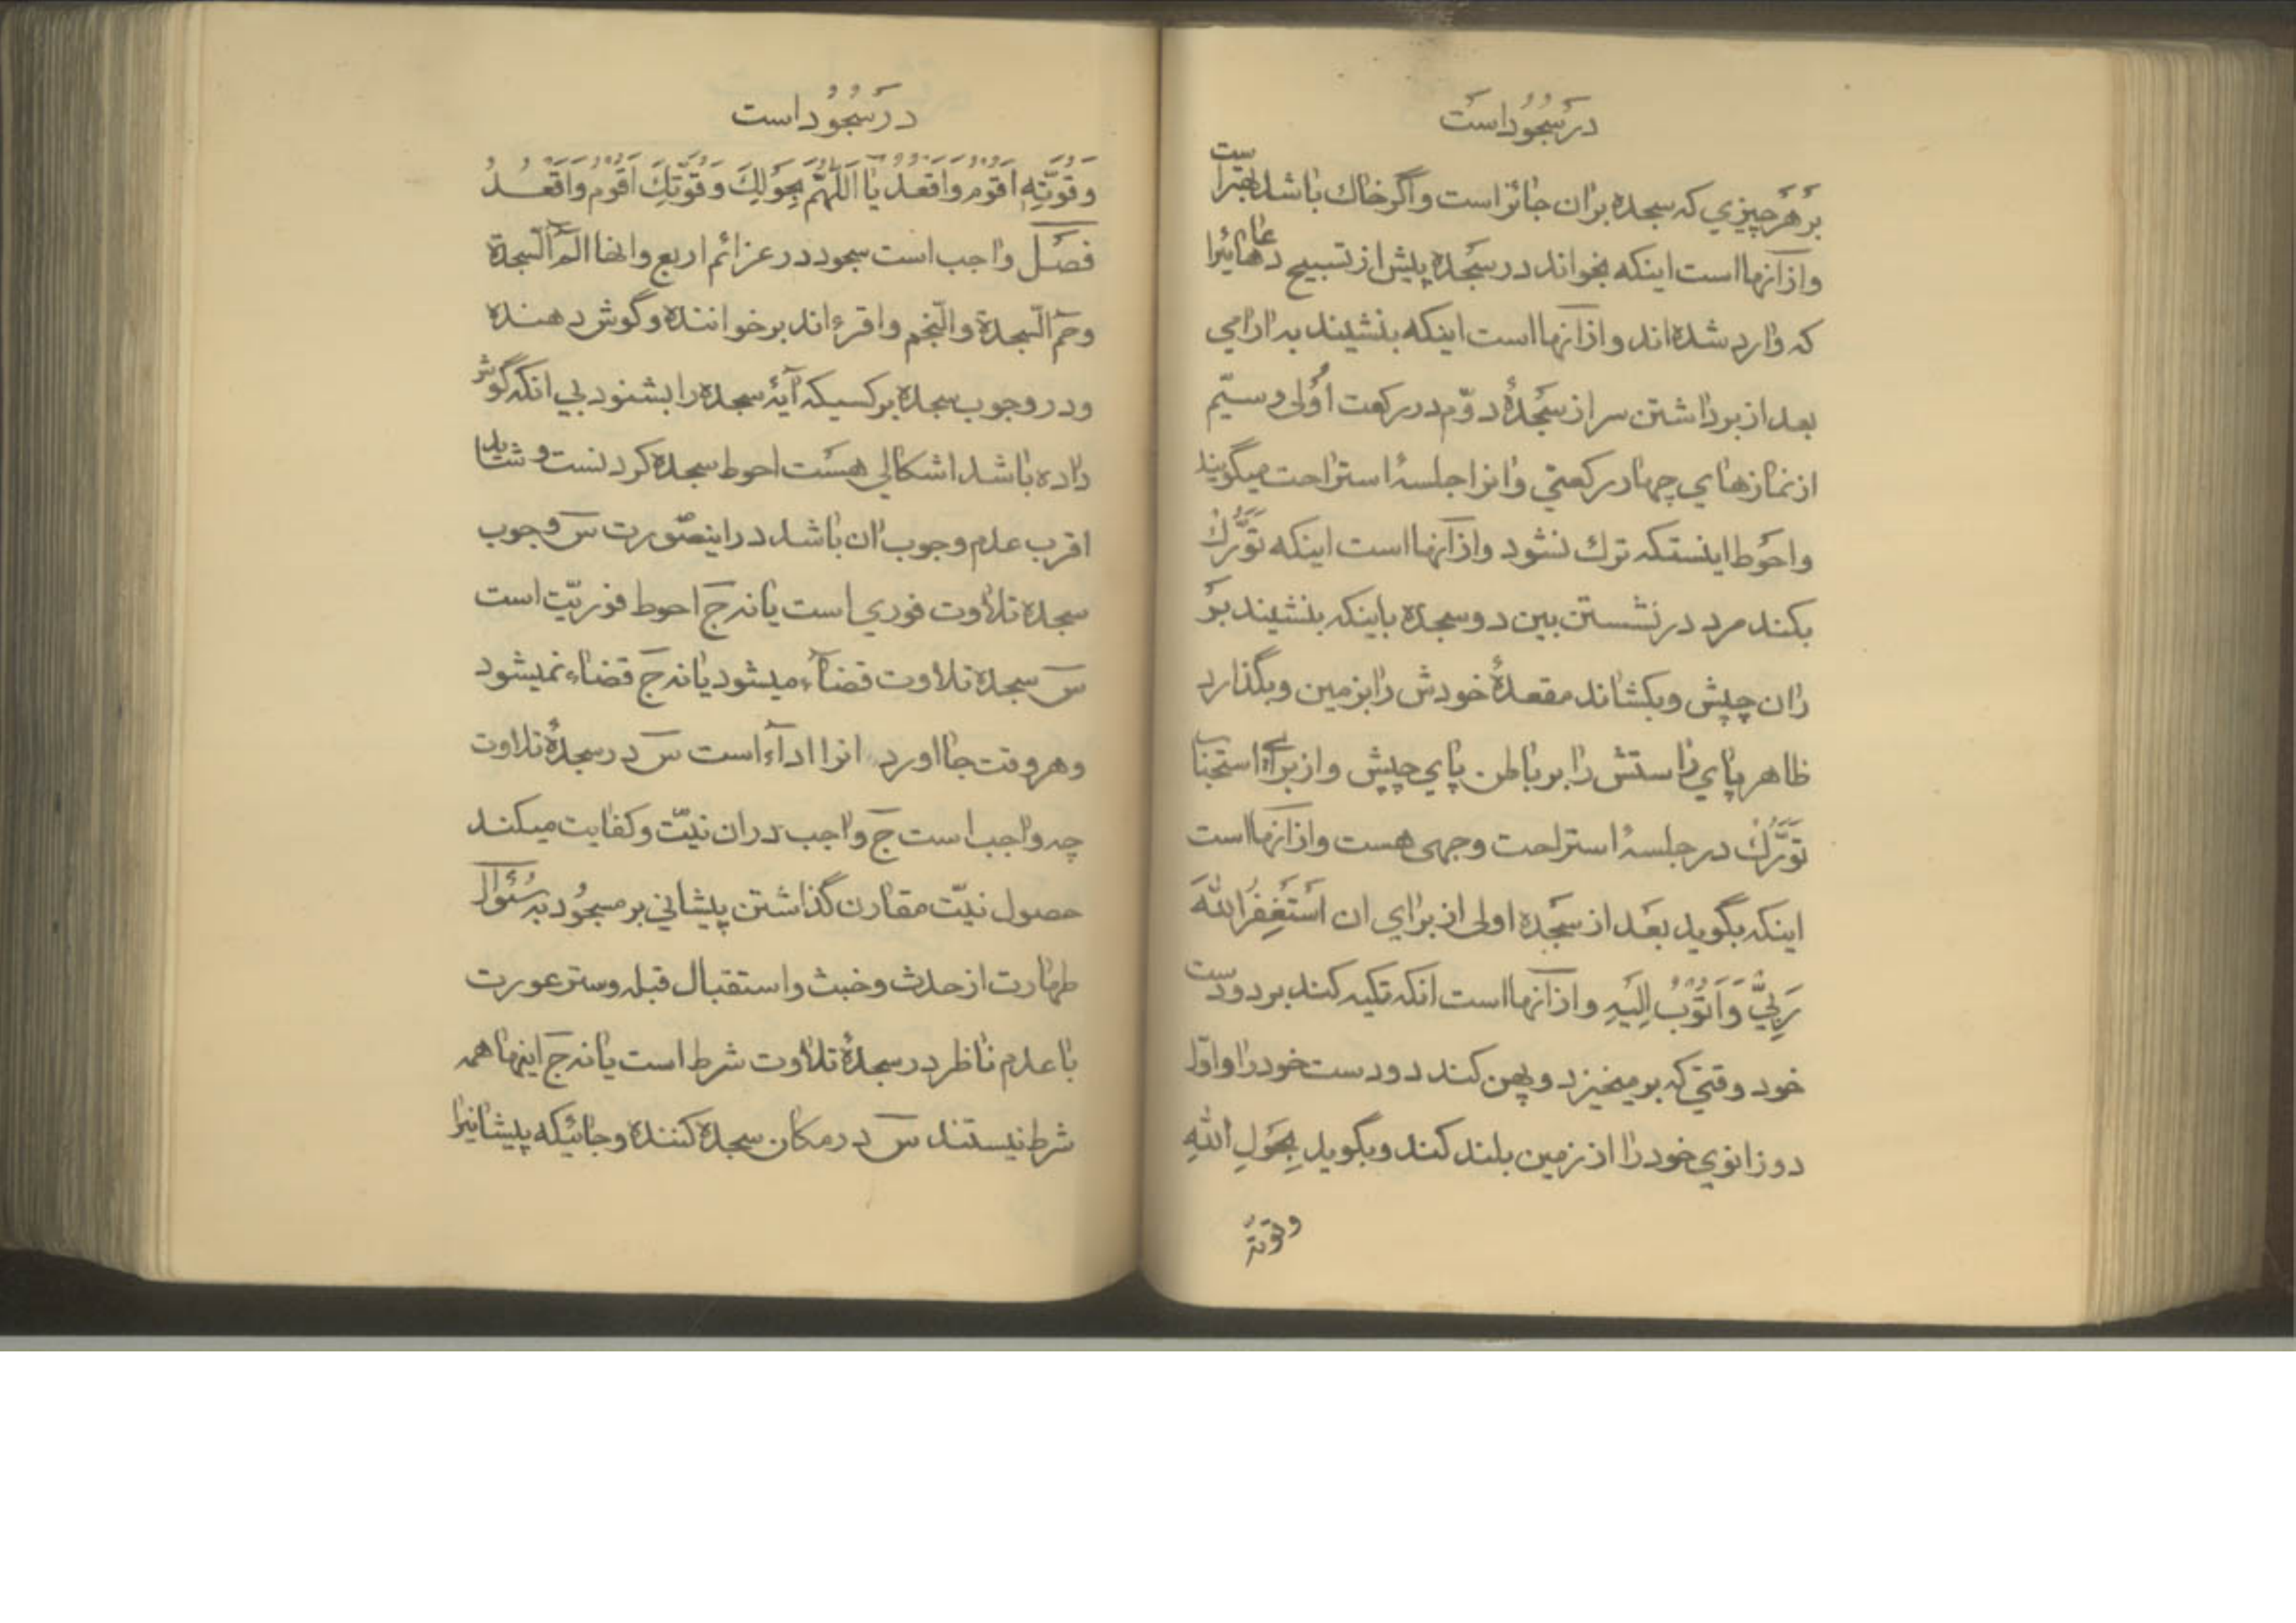 در سُجُود است
بر هر چیزي که سجده بران جائز است و اگر خاك باشد بهتر است
و از آنها است اینکه بخواند در سجده پیش از تسبیح دعاهائیرا
که وارد شده اند و از آنها است اینکه بنشیند به ارامي
بعد از برداشتن سر از سجدهٔ دوّم در رکعت اُولی و سیّم
از نمازهاي چهار رکعتي و انرا جلسهٔ استراحت میگویند
و احوط اینستکه ترك نشود و از آنها است اینکه تَوَرُّكْ
بکند مرد در نشستن بین دو سجده باینکه بنشیند بر
ران چپش و بکشاند مقعدهٔ خودش را بزمین و بگذارد
ظاهر پاي راستش را بر باطن پاي چپش و از براي استحباب
تَوَرُّكْ در جلسهٔ استراحت وجهی هست و از آنها است
اینکه بگوید بعد از سجده اولی از براي ان اَسْتَغْفِرُ اللهَ
رَبِّيْ وَ اَتُوْبُ اِلَیْهِ و از آنها است انکه تکیه کند بر دو دست
خود وقتي که بر میخیزد و پهن کند دو دست خود را و اوّل
دو زانوي خود را از زمین بلند کند و بگوید بِحَوْلِ اللهِ
وقوته
در سُجُود است
وَ قُوَّتِهٖ اَقُوْمُ وَ اَقْعُدُ یا اَللّٰهُمَّ بِحَوْلِكَ وَ قُوَّتِكَ اَقُوْمُ وَ اَقْعُدُ
فصل واجب است سجود در عزائم اربع و انها الم السّجدة
و حم السّجدة و النّجم و اقرء اند بر خواننده و گوش دهنده
و در وجوب سجده بر کسیکه آیهٔ سجده را بشنود بي انکه گوش
داده باشد اشکالي هست احوط سجده کردنست و شاید
اقرب عدم وجوب ان باشد در اینصورت س وجوب
سجده تلاوت فوري است یا نه ج احوط فوریّت است
س سجده تلاوت قضاء میشود یا نه ج قضاء نمیشود
و هر وقت جا اورد انرا اداء است س در سجدهٔ تلاوت
چه واجب است ج واجب دران نیّت و کفایت میکند
حصول نیّت مقارن گذاشتن پیشاني بر مسجُود به سُئوال
طهارت از حدث و خبث و استقبال قبله و ستر عورت
با عدم ناظر در سجدهٔ تلاوت شرط است یا نه ج اینها همه
شرط نیستند س در مکان سجده کننده و جائیکه پیشانیرا